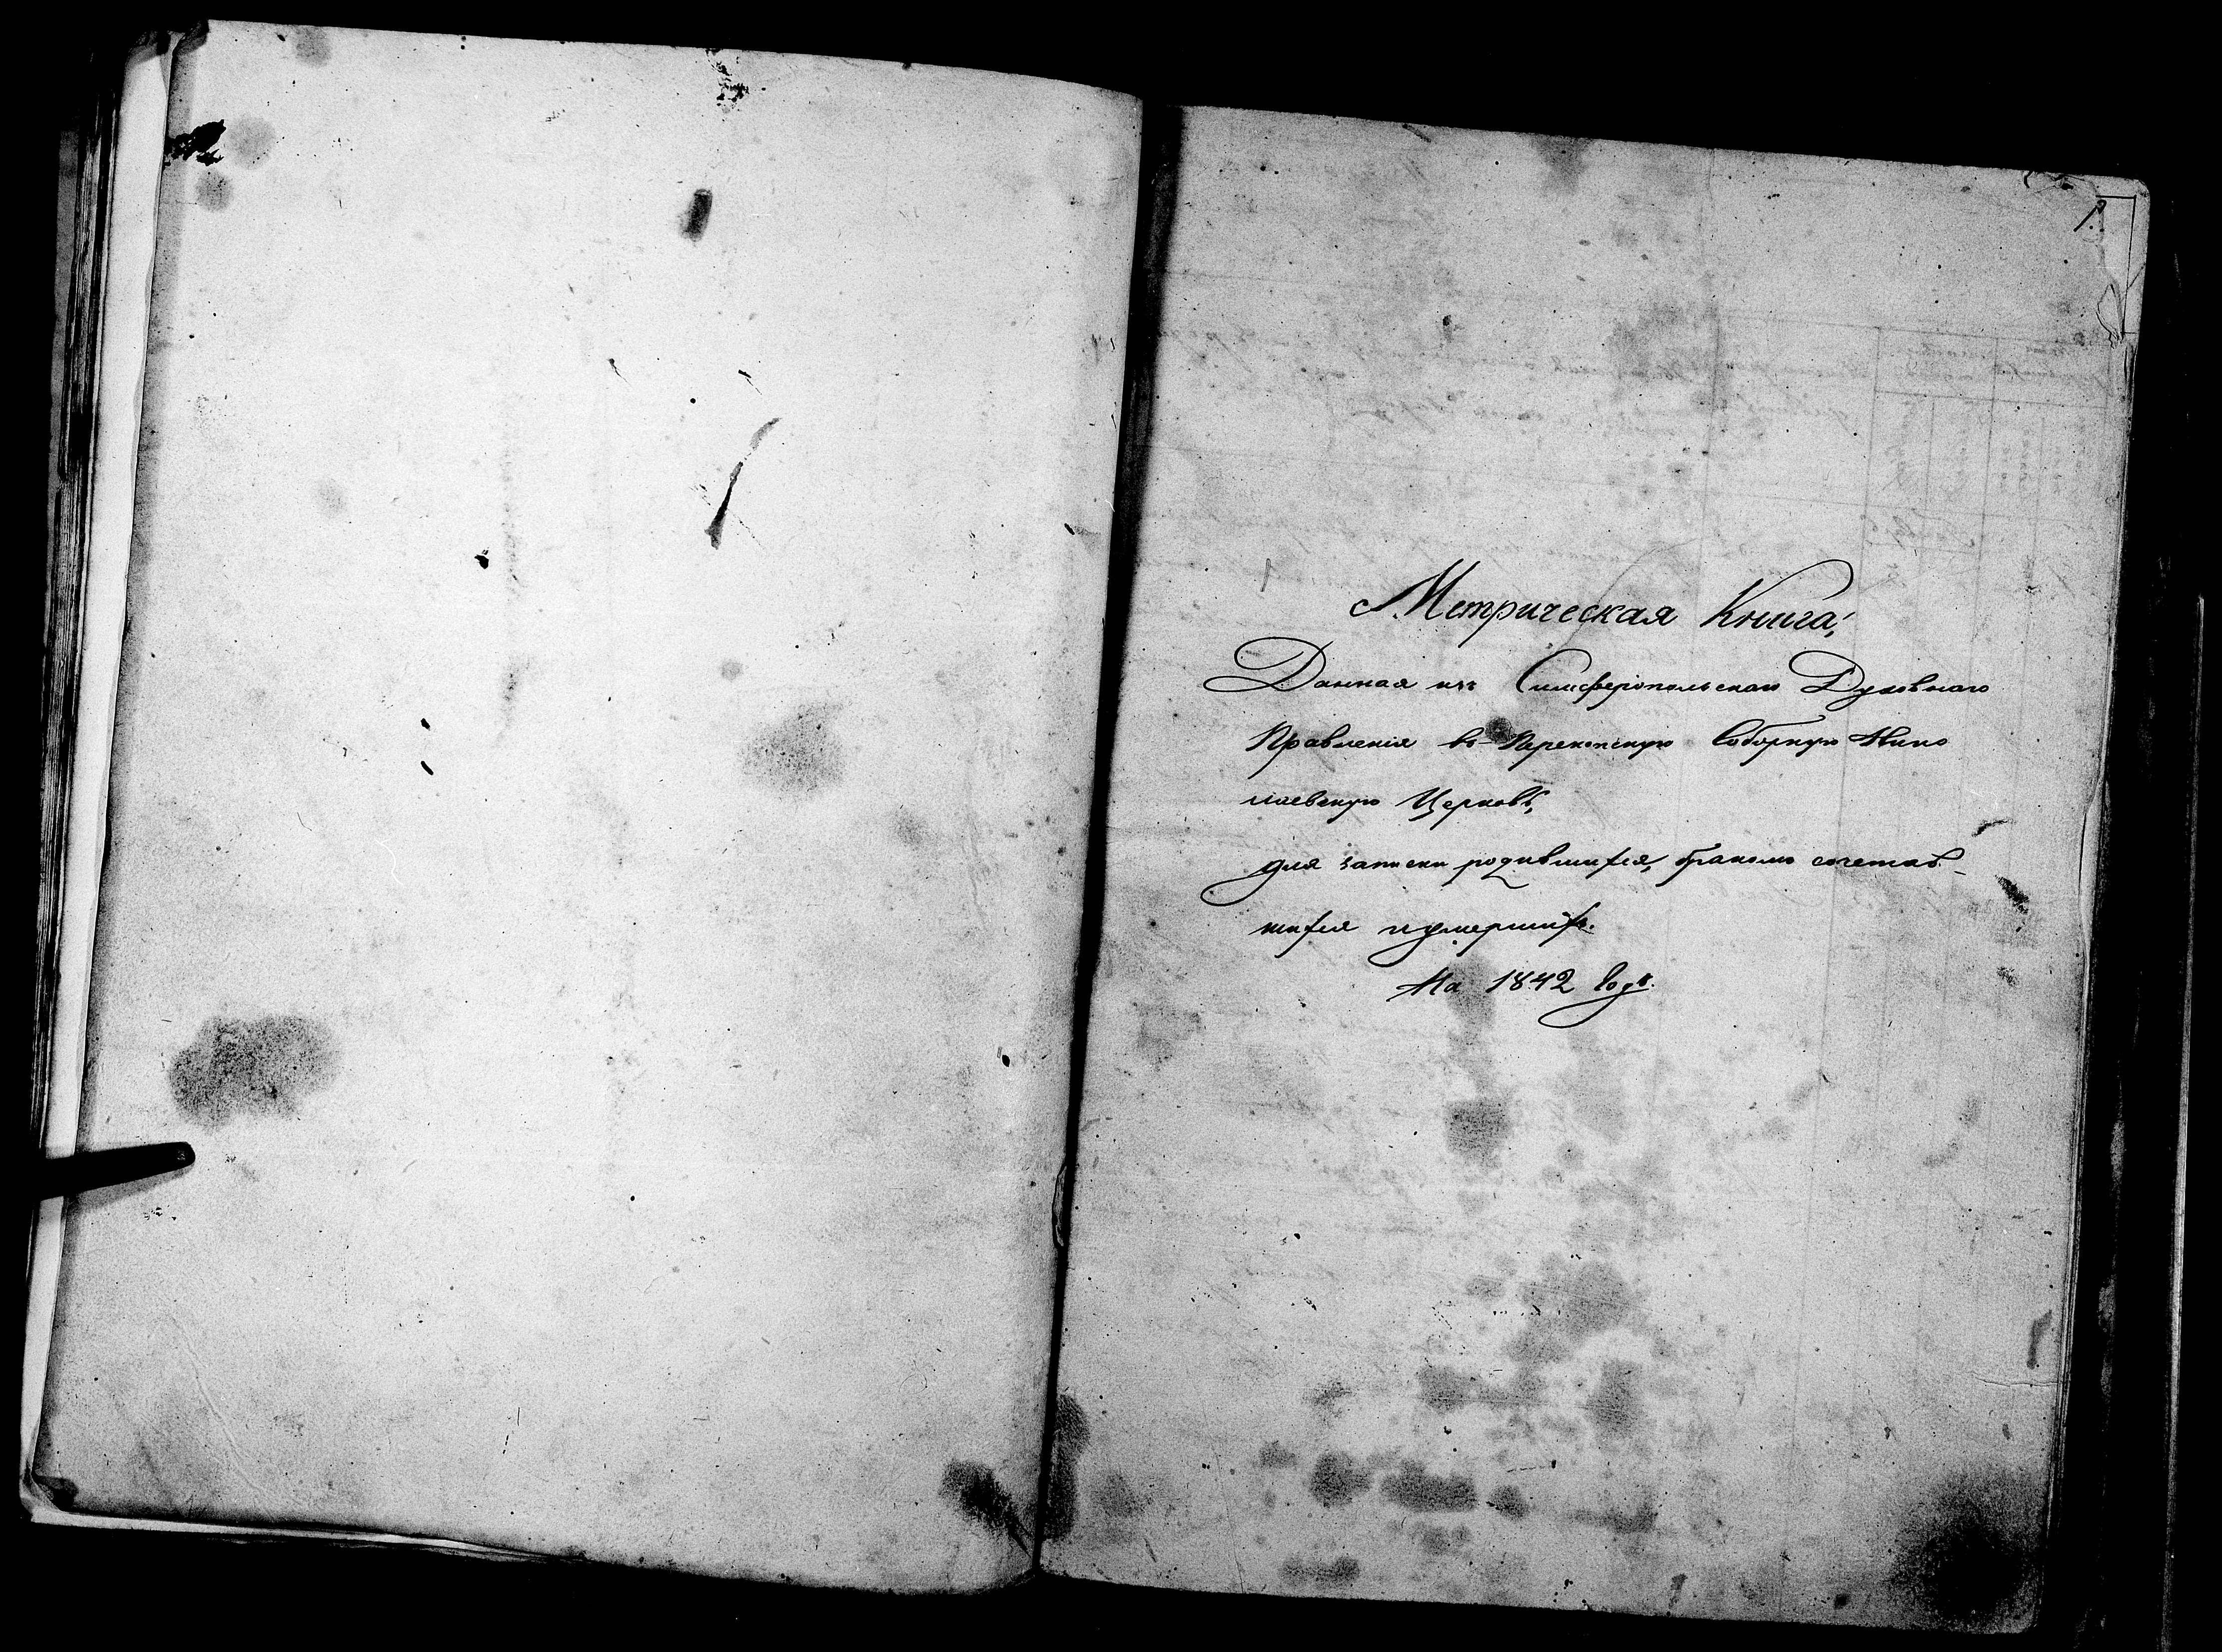 1.
Метрическая Книга,
Данная изъ Симферопольскаго Духовнаго
Правленія въ Перекопскую Соборную Нико
лаевскую Церковь,
для записки родившихся, бракомъ сочетав-
шихся и умершихъ.
На 1842 годъ.